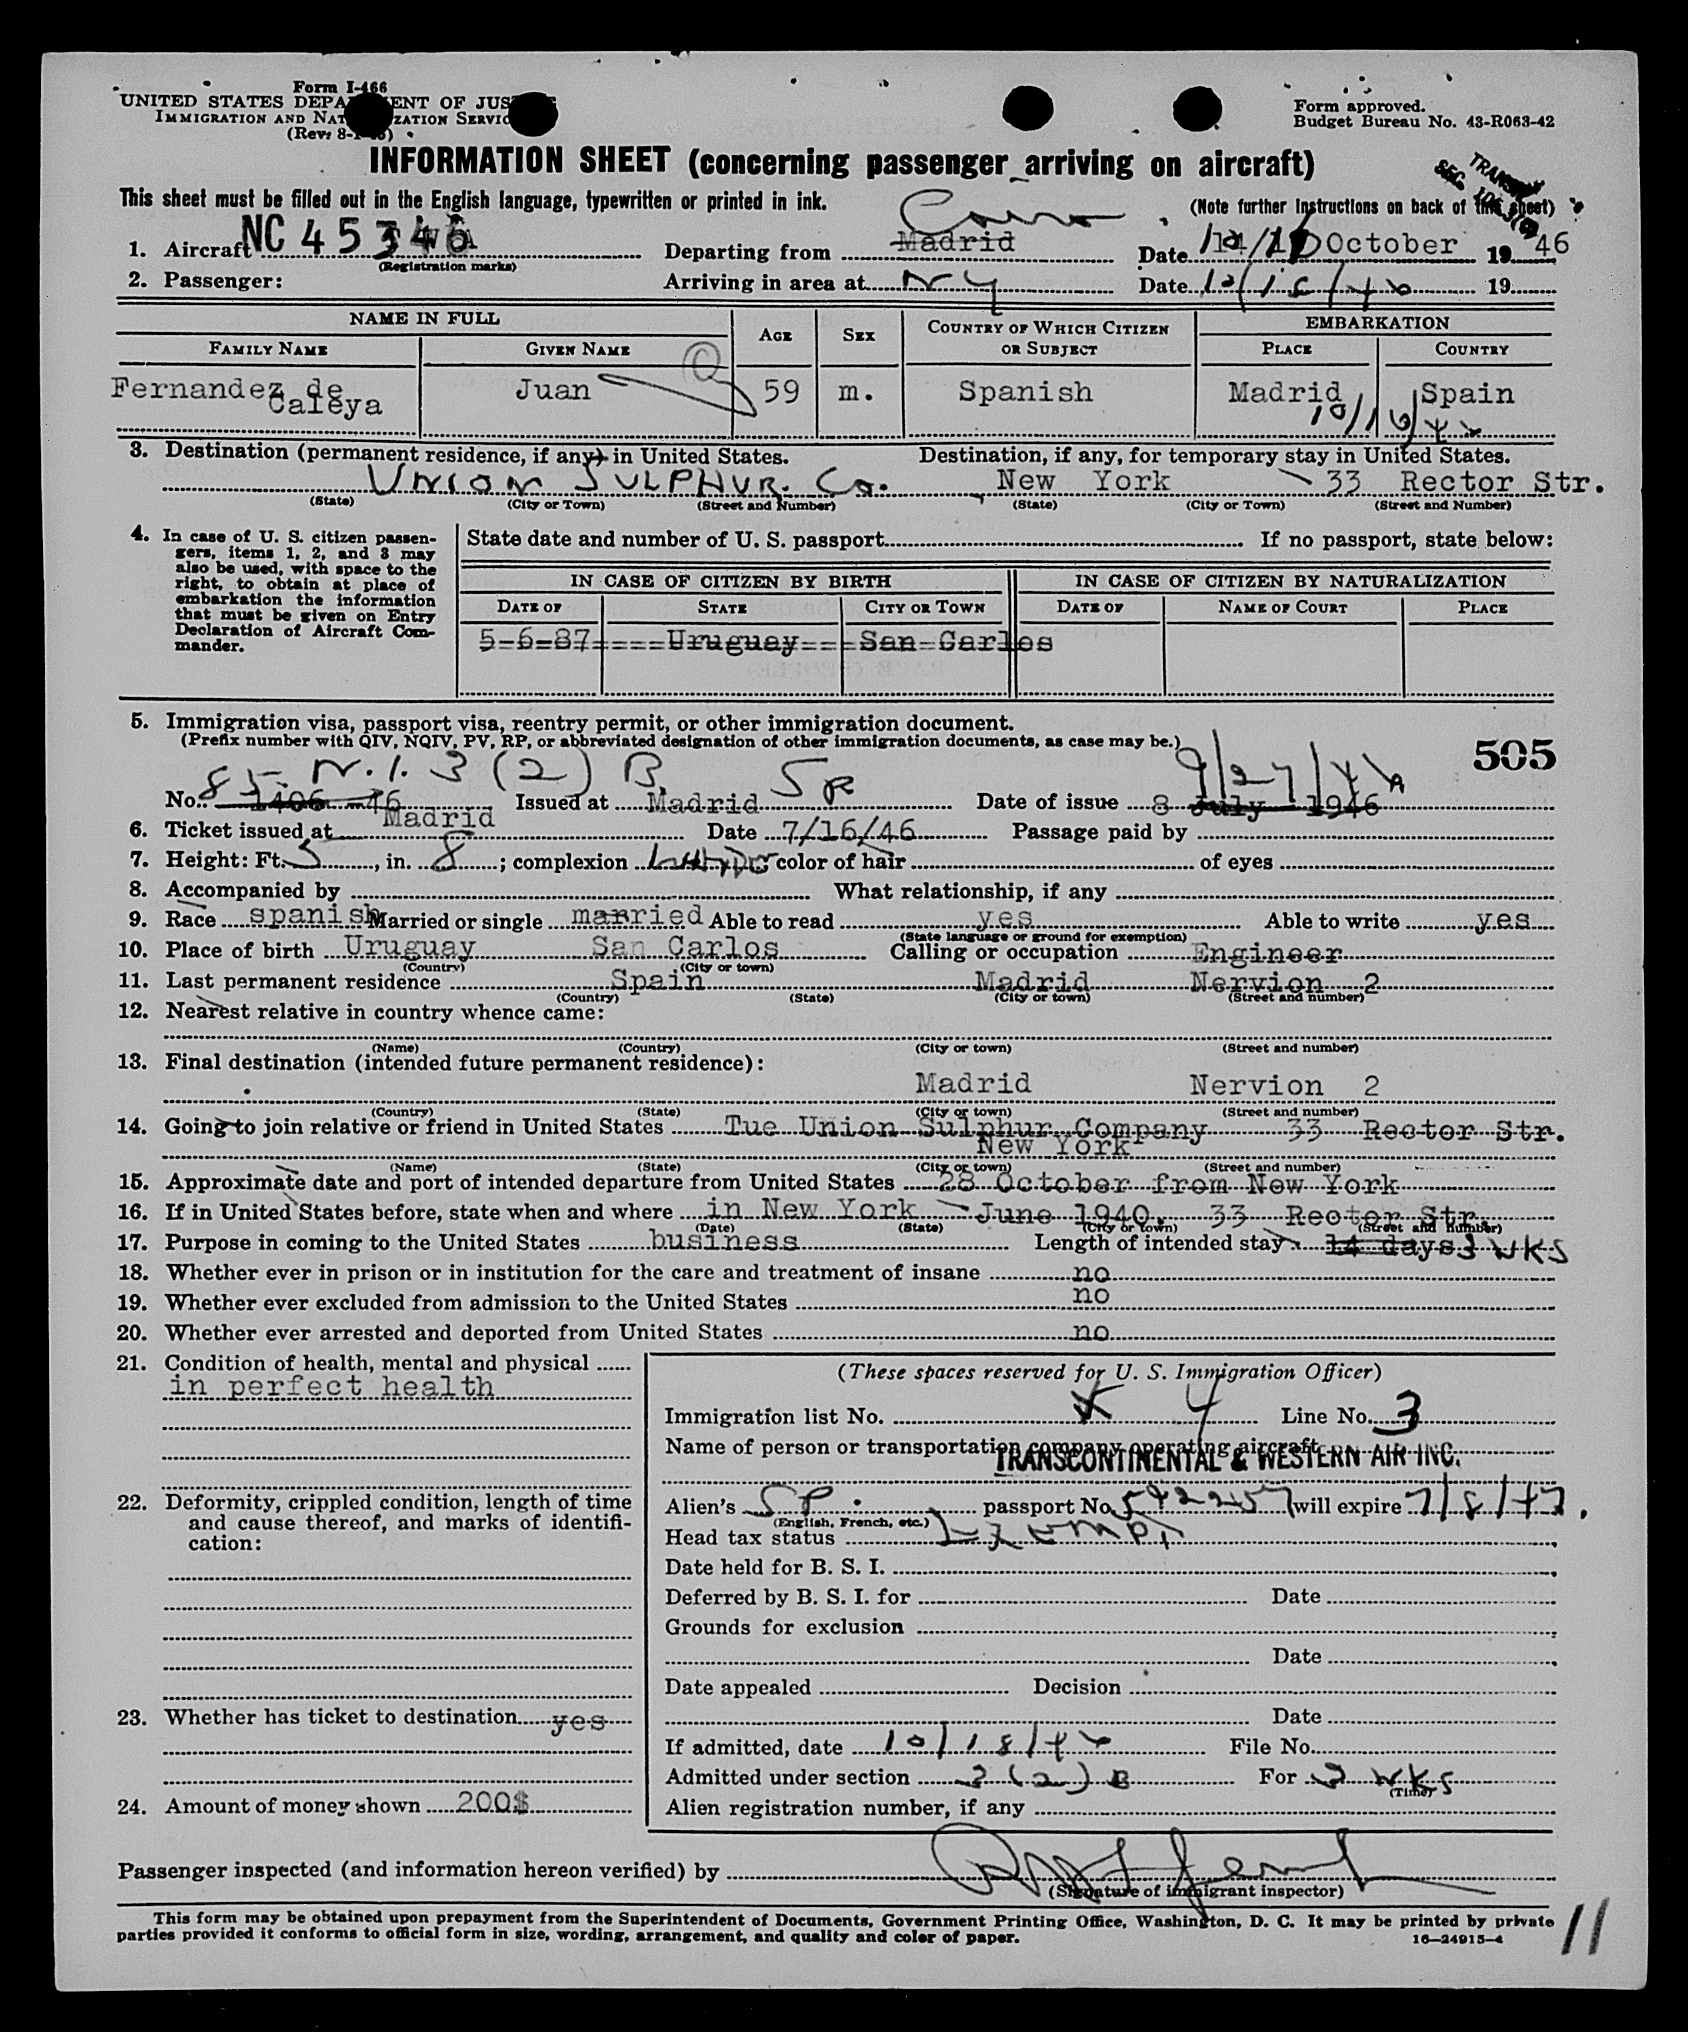 Form I-466
UNITED STATES DEPARTMENT OF JUSTICE
IMMIGRATION AND NATURALIZATION SERVICE
(Rev. 8-1-45)
Form approved.
Budget Bureau No. 43-R063-42
INFORMATION SHEET (concerning passenger arriving on aircraft)
This sheet must be filled out in the English language, typewritten or printed in ink.
(Note further instructions on back of this sheet)
1. Aircraft NC 45346 Departing from Madrid Cairo Date October 1946
(Registration marks)
2. Passenger: Arriving in area at NY Date 19
NAME IN FULL AGE SEX COUNTRY OF WHICH CITIZEN OR SUBJECT EMBARKATION
FAMILY NAME GIVEN NAME PLACE COUNTRY
Fernandez de Caleya Juan 59 m. Spanish Madrid Spain
3. Destination (permanent residence, if any) in United States. Destination, if any, for temporary stay in United States.
UNION SULPHUR. Co. New York 33 Rector Str.
(State) (City or Town) (Street and Number) (State) (City or Town) (Street and Number)
4. In case of U. S. citizen passengers, items 1, 2, and 3 may also be used, with space to the right, to obtain at place of embarkation the information that must be given on Entry Declaration of Aircraft Commander.
State date and number of U. S. passport If no passport, state below:
IN CASE OF CITIZEN BY BIRTH IN CASE OF CITIZEN BY NATURALIZATION
DATE OF STATE CITY OR TOWN DATE OF NAME OF COURT PLACE
5-6-87 Uruguay San Carlos
5. Immigration visa, passport visa, reentry permit, or other immigration document.
(Prefix number with QIV, NQIV, PV, RP, or abbreviated designation of other immigration documents, as case may be.)
505
N.I. 3 (2) B
No. 1406-46 Issued at Madrid Date of issue 8 July 1946
6. Ticket issued at Madrid Date 7/16/46 Passage paid by
7. Height: Ft. 5, in. 8; complexion color of hair of eyes
8. Accompanied by What relationship, if any
9. Race spanish Married or single married Able to read yes Able to write yes
(State language or ground for exemption)
10. Place of birth Uruguay San Carlos Calling or occupation Engineer
(Country) (City or town)
11. Last permanent residence Spain Madrid Nervion 2
(Country) (State) (City or town) (Street and number)
12. Nearest relative in country whence came:
(Name) (Country) (City or town) (Street and number)
13. Final destination (intended future permanent residence):
Madrid Nervion 2
(Country) (State) (City or town) (Street and number)
14. Going to join relative or friend in United States Tue Union Sulphur Company 33 Rector Str.
New York
(Name) (State) (City or town) (Street and number)
15. Approximate date and port of intended departure from United States 28 October from New York
16. If in United States before, state when and where in New York June 1940, 33 Rector Str.
(Date) (State) (City or town) (Street and number)
17. Purpose in coming to the United States business Length of intended stay 14 days 3 WKS
18. Whether ever in prison or in institution for the care and treatment of insane no
19. Whether ever excluded from admission to the United States no
20. Whether ever arrested and deported from United States no
21. Condition of health, mental and physical
in perfect health
(These spaces reserved for U. S. Immigration Officer)
Immigration list No. 4 Line No. 3
Name of person or transportation company operating aircraft
TRANSCONTINENTAL & WESTERN AIR INC.
22. Deformity, crippled condition, length of time and cause thereof, and marks of identification:
Alien's SP. passport No. will expire 7/8/47.
(English, French, etc.)
Head tax status EXEMPT
Date held for B. S. I.
Deferred by B. S. I. for Date
Grounds for exclusion
Date
Date appealed Decision
23. Whether has ticket to destination yes
Date
If admitted, date 10/18/46 File No.
Admitted under section 3(2)B For 3 WKS
(Time)
24. Amount of money shown 200$
Alien registration number, if any
Passenger inspected (and information hereon verified) by
(Signature of immigrant inspector)
This form may be obtained upon prepayment from the Superintendent of Documents, Government Printing Office, Washington, D. C. It may be printed by private
parties provided it conforms to official form in size, wording, arrangement, and quality and color of paper.
16—24915-4
11